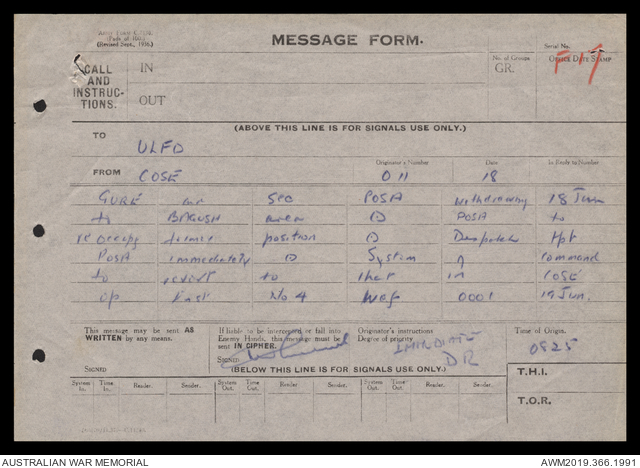 (Pads of 100.)
(Revised Sept., 1936.)
MESSAGE FORM.
Serial No.
CALL AND INSTRUCTIONS.
IN
OUT
No. of Groups
GR.
OFFICE DATE STAMP
F 17
(ABOVE THIS LINE IS FOR SIGNALS USE ONLY.)
TO
ULFD
FROM
COSE
Originator's Number
011
Date
18
In Reply to Number
GURE sec POSA withdrawing 18 Jun
to BAGUSH area ⊙ POSA to
re occupy former position ⊙ Despatch tpt
POSA immediately ⊙ System of command
to revert to that in COSE
op Inst No 4 wef 0001 19 Jun.
This message may be sent AS WRITTEN by any means.
SIGNED
If liable to be intercepted or fall into Enemy Hands, this message must be sent IN CIPHER.
SIGNED
Originator's instructions
Degree of priority
IMMEDIATE
DR
Time of Origin.
0825
(BELOW THIS LINE IS FOR SIGNALS USE ONLY.)
T.H.I.
T.O.R.
System In.
Time In.
Reader.
Sender.
System Out.
Time Out.
Reader.
Sender.
System Out.
Time Out.
Reader.
Sender.
AUSTRALIAN WAR MEMORIAL
AWM2019.366.1991